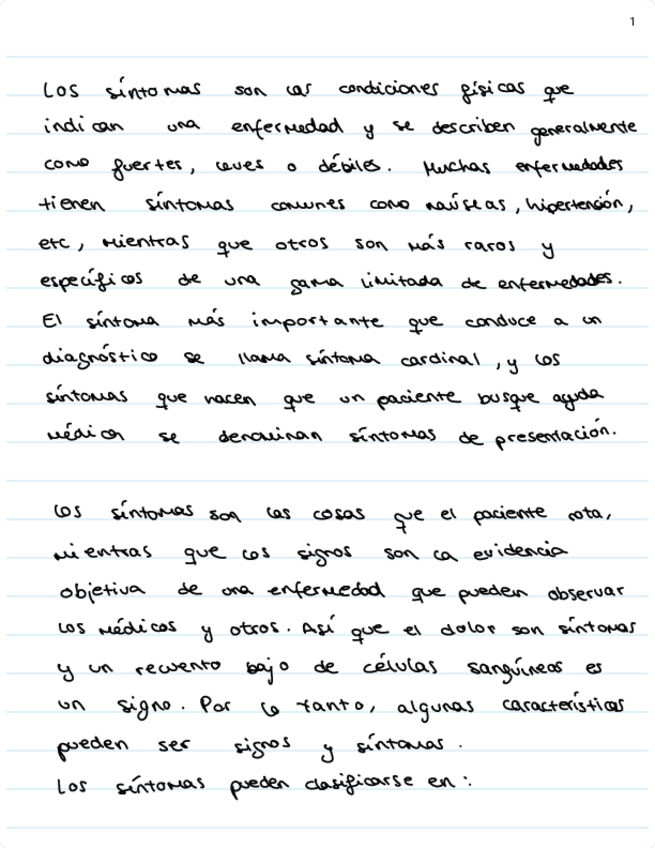 1
Los síntomas son las condiciones físicas que
indican una enfermedad y se describen generalmente
como fuertes, leves o débiles. Muchas enfermedades
tienen síntomas comunes como naúseas, hipertensión,
etc, mientras que otros son más raros y
específicos de una gama limitada de enfermedades.
El síntoma más importante que conduce a un
diagnóstico se llama síntoma cardinal, y los
síntomas que hacen que un paciente busque ayuda
médica se denominan síntomas de presentación.
Los síntomas son las cosas que el paciente nota,
mientras que los signos son la evidencia
objetiva de una enfermedad que pueden observar
los médicos y otros. Así que el dolor son síntomas
y un recuento bajo de células sanguíneas es
un signo. Por lo tanto, algunas características
pueden ser signos y síntomas.
Los síntomas pueden clasificarse en: